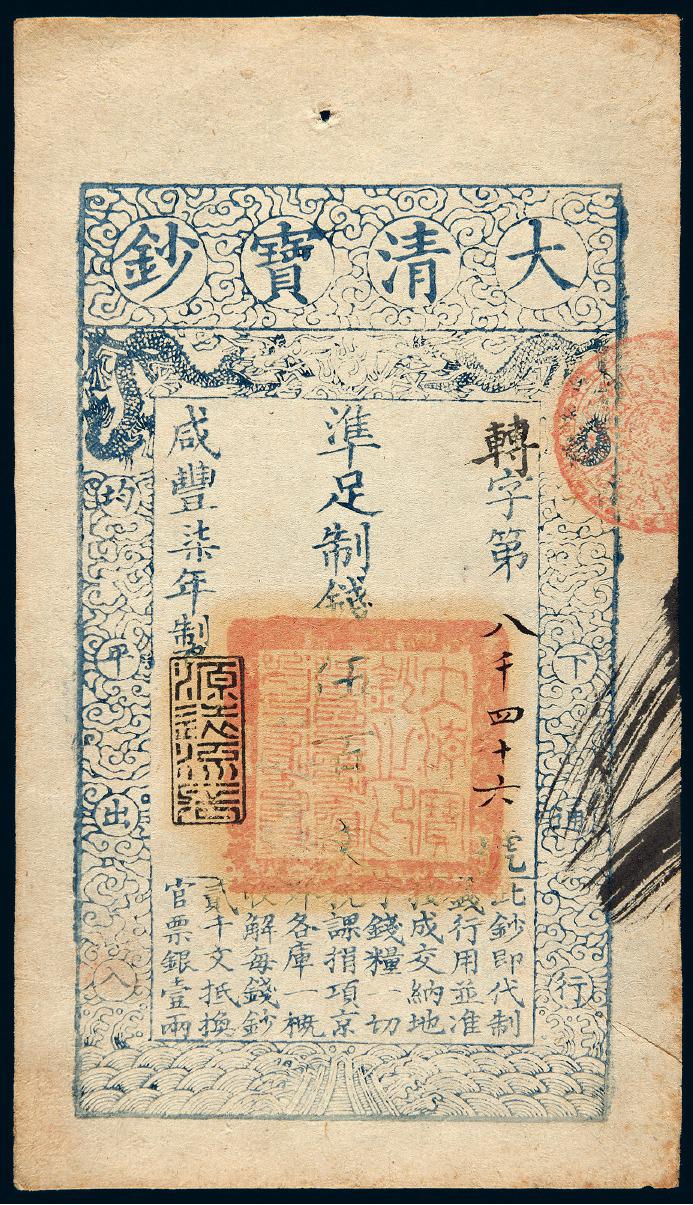 大清寶鈔
天下通行
均平出入
轉字第八千四十六號
準足制錢伍百文
咸豐柒年製
此鈔即代制
錢行用並准
按成交納地
丁錢糧一切
稅課捐項京
外各庫一概
收解每錢鈔
貳千文抵換
官票銀壹兩
大清寶
鈔之印